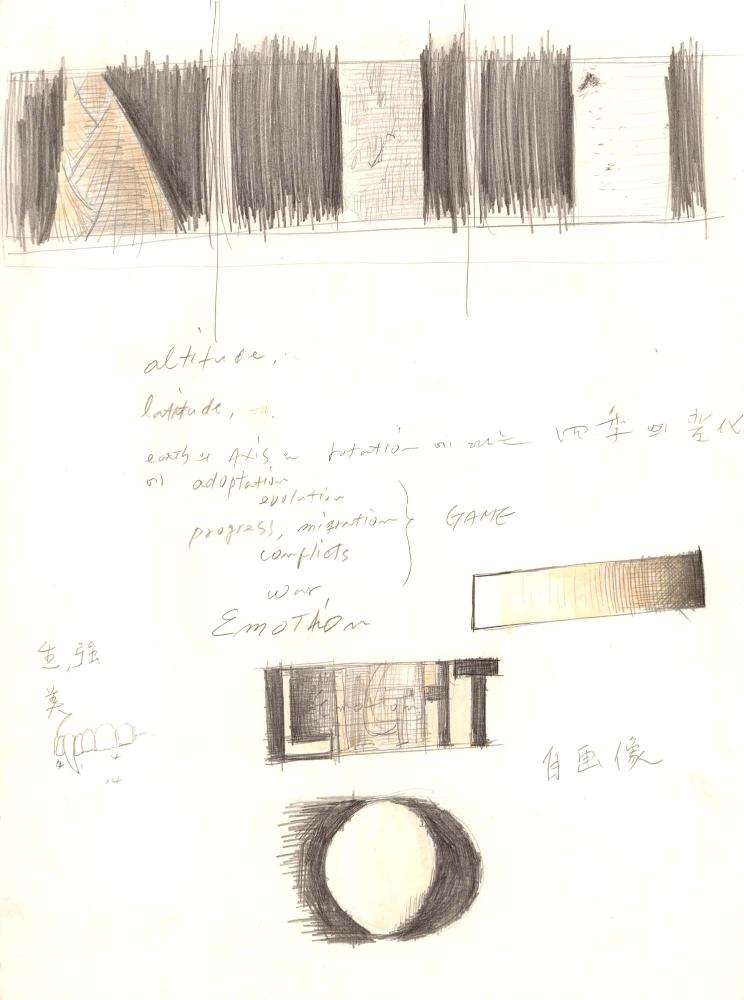 altitude,
latitude,
earth의 Axis rotation에 따른 四季의 变化
에 adoptation
evolution
progress, migration
GAME
conflicts
war,
Emotion
生, 強
美
LIGHT
Emotion
自画像